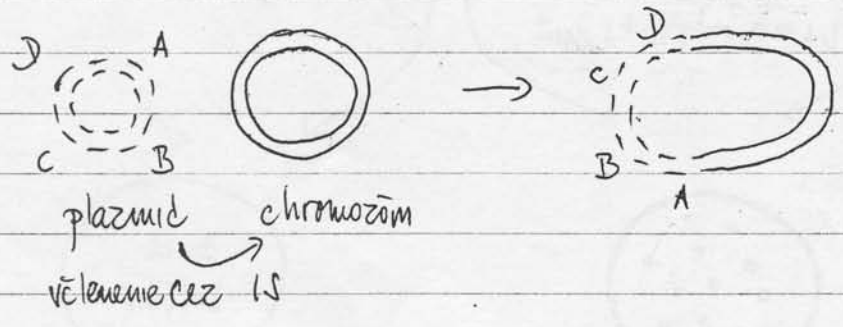 D A
C B
plazmid chromozóm
včlenenie cez IS
D
C
B
A